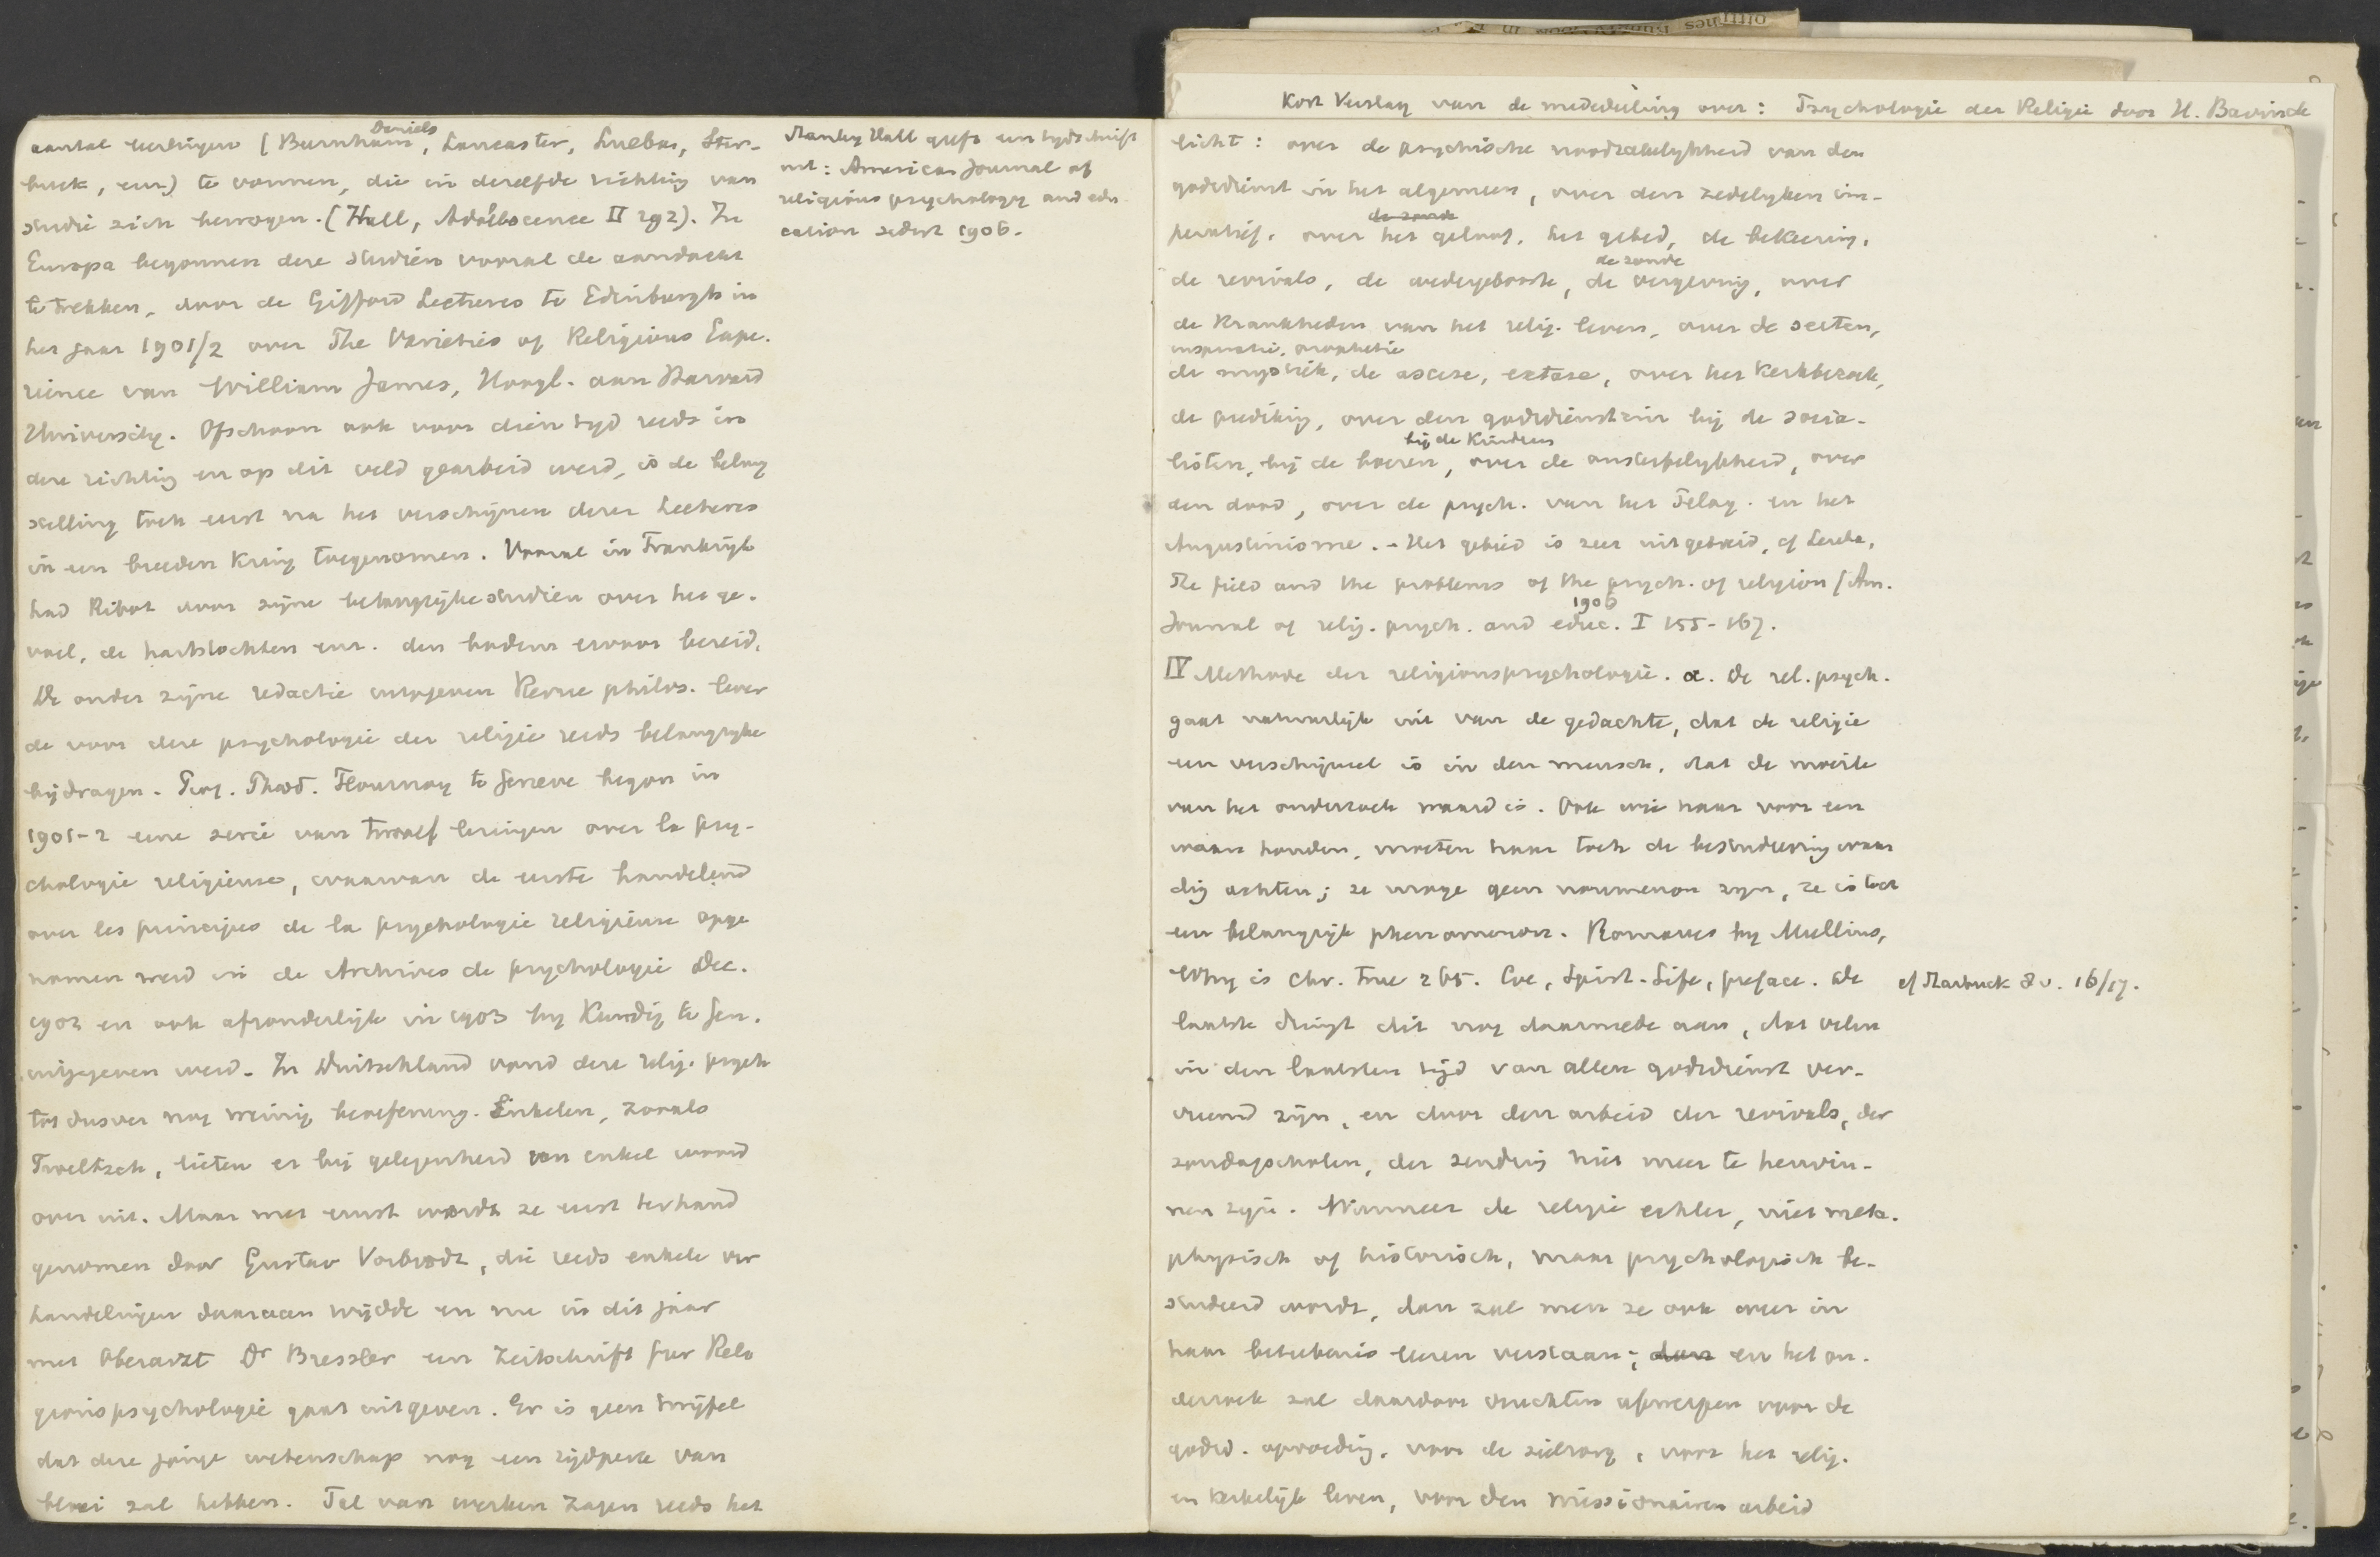 aantal leerlingen (Burnham, Daniels, Lancaster, Leuba, Star-
buck, enz) te vormen, die in dezelfde richting van
studie zich bewogen. (Hall, Adolescence II 292). In
Europa begonnen deze studiën vooral de aandacht
te trekken, door de Gifford Lectures te Edinburgh in
het jaar 1901/2 over The Varieties of Religious Expe-
rience van William James, Hoogl. aan Harvard
University. Ofschoon ook voor dien tijd reeds in
deze richting en op dit veld gearbeid werd, is de belang
stelling toch eerst na het verschijnen dezer Lectures
in een breeden kring toegenomen. Vooral in Frankrijk
had Ribot door zijne belangrijke studiën over het ge-
voel, de hartstochten enz. den bodem ervoor bereid.
De onder zijne redactie uitgegeven Revue philos. lever
de voor deze psychologie der religie reeds belangrijke
bijdragen. Prof. Théod. Flournoy te Geneve begon in
1901-2 eene serie van twaalf lezingen over la psy-
chologie religieuse, waarvan de eerste handelend
over les principes de la psychologie religieuse opge
nomen werd in de Archives de psychologie Dec.
1902 en ook afzonderlijk in 1903 bij Kundig te Gen.
uitgegeven werd. In Duitschland vond deze relig. psych
tot dusver nog weinig beoefening. Enkelen, zooals
Troeltsch, lieten er bij gelegenheid een enkel woord
over uit. Maar met ernst wordt ze eerst terhand
genomen door Gustav Vorbrodt, die reeds enkele ver
handelingen daaraan wijdde en nu in dit jaar
met Oberarzt Dr Bressler een Zeitschrift fur Reli
gionspsychologie gaat uitgeven. Er is geen twijfel
dat deze jonge wetenschap nog een tijdperk van
bloei zal hebben. Tal van werken zagen reeds het
Stanley Hall geeft een tijdschrift
uit: American Journal of
religious psychology and edu
cation sedert 1906.
Kort Verslag van de mededeeling over: Psychologie der Religie door H. Bavinck
licht: over de psychische noodzakelijkheid van den
godsdienst in het algemeen, over den zedelijken im-
de zonde
peratief, over het geloof, het gebed, de bekeering,
de zonde
de revivals, de wedergeboorte, de vergeving, over
de krankheden van het relig. leven, over de secten,
inspiratie, prophetie
de mystiek, de ascese, extase, over het kerkbezoek,
de prediking, over den godsdienstzin bij de socia-
bij de kinderen
listen, bij de boeren, over de onsterfelijkheid, over
den dood, over de psych. van het Pelag. en het
Augustinisme. - Het gebied is zeer uitgebreid, cf Leuba,
The field and the problems of the psych. of religion (Am.
1906
Journal of relig. psych. and educ. I 155-167.
IV Methode der religionspsychologie. a. De rel. psych.
gaat natuurlijk uit van de gedachte, dat de religie
een verschijnsel is in den mensch, dat de moeite
van het onderzoek waard is. Ook wie haar voor een
waan houden, moeten haar toch de bestudeering waar
dig achten; ze moge geen noumenon zijn, ze is toch
een belangrijk phenomenon. Romanes bij Mullins,
Why is Chr. true 265. Coe, Spirit. Life, preface. De
cf Starbuck 8v. 16/17.
laatste dringt dit nog daarmede aan, dat velen
in den laatsten tijd van allen godsdienst ver-
vreemd zijn, en door den arbeid der revivals, der
zondagscholen, der zending niet meer te herwin-
nen zijn. Wanneer de religie echter, niet meta-
physisch of historisch, maar psychologisch be-
studeerd wordt, dan zal men ze ook weer in
haar beteekenis leeren verstaan; dan en het on-
derzoek zal daardoor vruchten afwerpen voor de
godsd. opvoeding, voor de zielzorg, voor het relig.
en kerkelijk leven, voor den missionairen arbeid